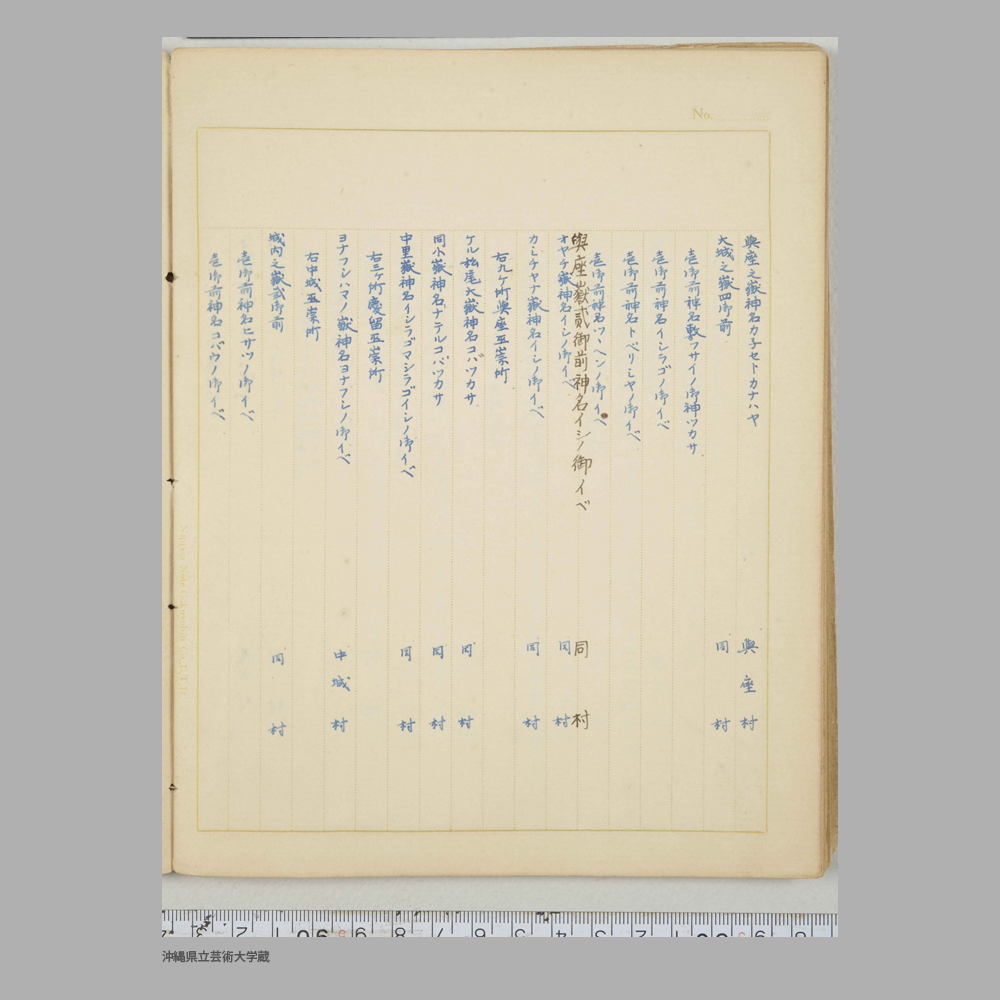 No.
與座之嶽神名カ子セトカナハヤ 與座村
大城之嶽四御前 同村
壱御前神名敷フサイノ御神ツカサ
壱御前神名イシラゴノ御イベ
壱御前神名トベリシヤノ御イベ
壱御前神名ツヽヘンノ御イベ
與座嶽貳御前神名イシノ御イベ 同村
オヤチ嶽神名イシノ御イベ 同村
カシチヤナ嶽神名イシノ御イベ 同村
右九ケ所與座巫崇所
ケル松尾大嶽神名コバツカサ 同村
同小嶽神名ナデルコバツカサ 同村
中里嶽神名イシラゴマシラゴイシノ御イベ 同村
右三ケ所慶留巫崇所
ヨナフシハマノ嶽神名ヨナフシノ御イベ 中城村
右中城巫崇所
城内之嶽貳御前 同村
壱御前神名ヒサツノ御イベ
壱御前神名コバウノ御イベ
沖縄県立芸術大学蔵